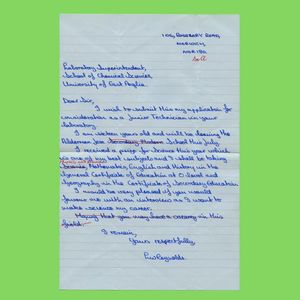 Norwich,
Laboratory Superintendent,
School of Chemical Sciences,
University of East Anglia
Dear Sir,
I wish to submit this my application for
consideration as a Junior Technician in your
laboratory.
I am sixteen years old and will be leaving the
Alderman Jex Secondary Modern School this July.
I received a prize for Science this year which
is one of my best subjects and I shall be taking
Science, Mathematics, English and History in the
General Certificate of Education at O level and
Geography in the Certificate of Secondary Education.
I would be very pleased if you would
favour me with an interview as I want to
make science my career.
Hoping that you may have a vacancy in this
field.
I remain,
Yours respectfully,
Reynolds